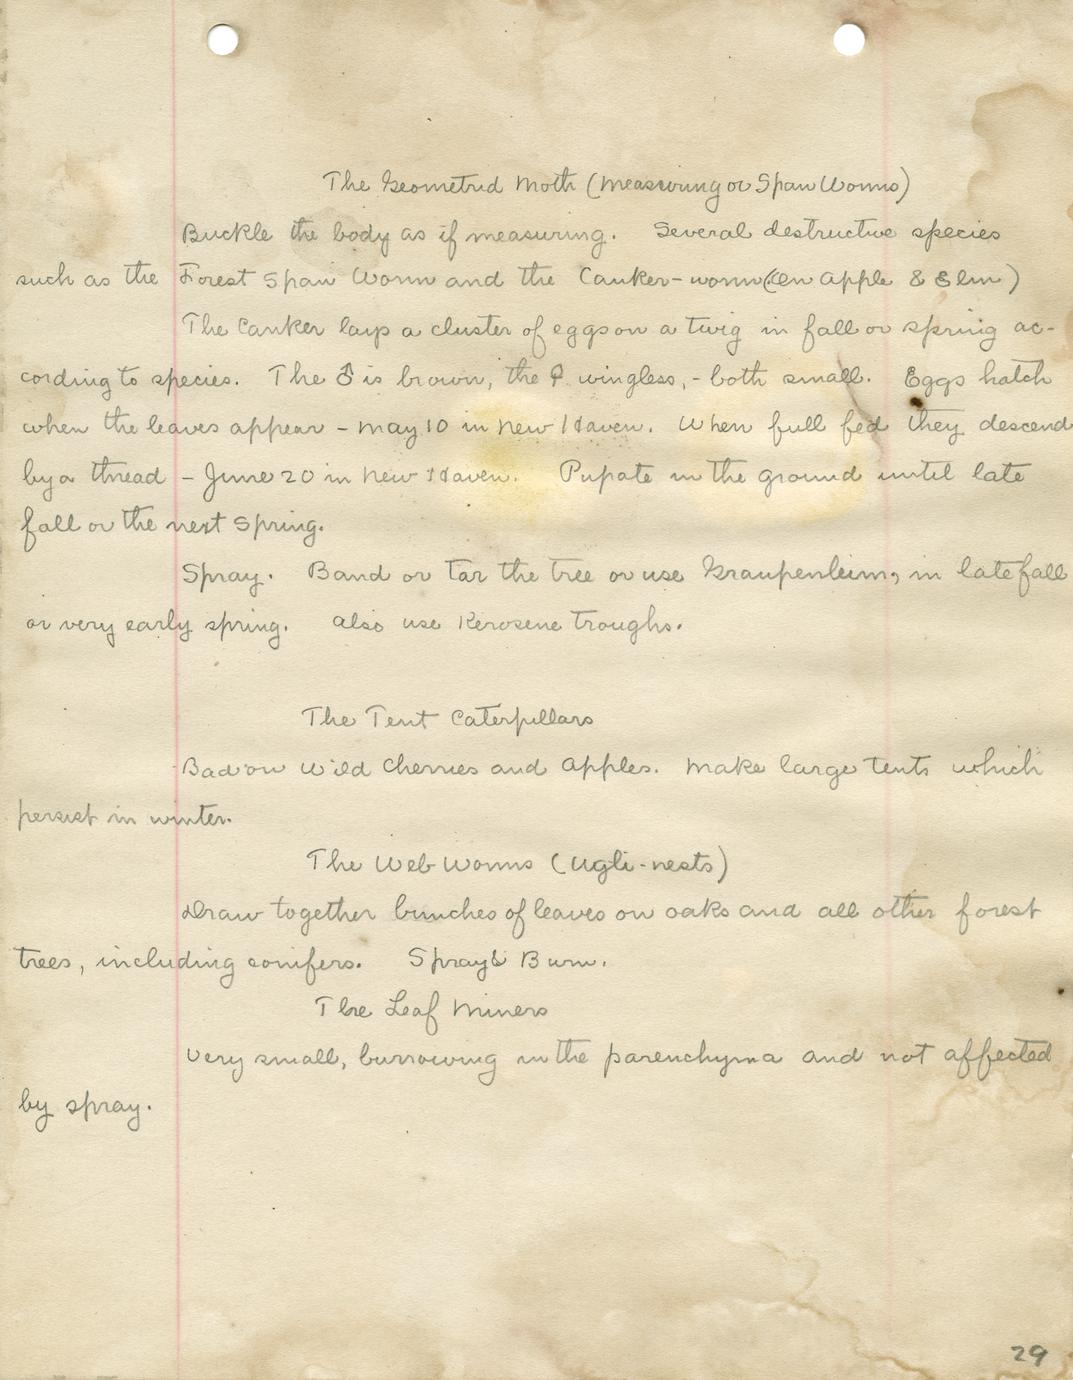 The Geometrid Moth (Measuring or Span Worms)
Buckle the body as if measuring. Several destructive species
such as the Forest Span Worm and the Canker-worm (On Apple & Elm)
The Canker lays a cluster of eggs on a twig in fall or spring ac-
cording to species. The ♂ is brown, the ♀ wingless, - both small. Eggs hatch
when the leaves appear - May 10 in New Haven. When full fed they descend
by a thread - June 20 in New Haven. Pupate in the ground until late
fall or the next spring.
Spray. Band or tar the tree or use Graupenleim, in late fall
or very early spring. Also use Kerosene troughs.
The Tent Caterpillars
Bad on Wild Cherries and Apples. Make large tents which
persist in winter.
The Web Worms (Ugli-nests)
Draw together bunches of leaves on oaks and all other forest
trees, including conifers. Spray & Burn.
The Leaf Miners
Very small, burrowing in the parenchyma and not affected
by spray.
29